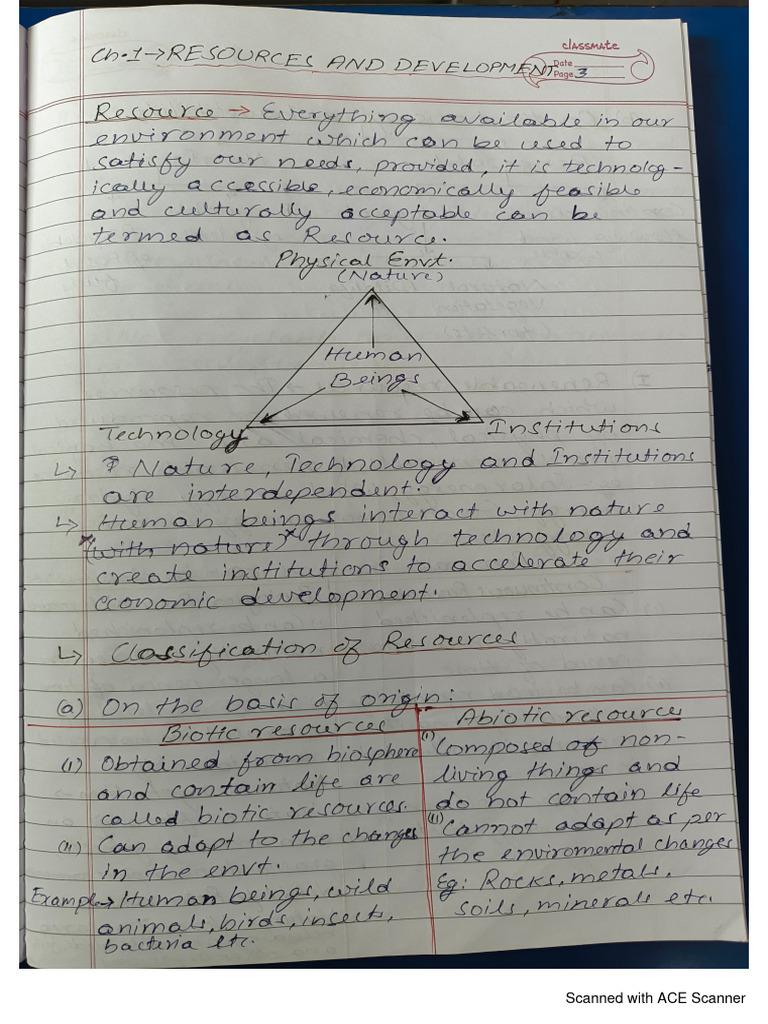 classmate
Date
Page 3
Ch.1→RESOURCES AND DEVELOPMENT
Resource → Everything available in our
environment which can be used to
satisfy our needs, provided, it is technolog-
ically accessible, economically feasible
and culturally acceptable can be
termed as Resource.
Physical Envt.
(Nature)
Human
Beings
Technology
Institutions
↳ Nature, Technology and Institutions
are interdependent.
↳ Human beings interact with nature
*(with nature)* through technology and
create institutions to accelerate their
economic development.
↳ Classification of Resources
(a) On the basis of origin:
Biotic resources
(i) Obtained from biosphere
and contain life are
called biotic resources.
(ii) Can adapt to the changes
in the envt.
Example→ Human beings, wild
animals, birds, insects,
bacteria etc.
Abiotic resources
(i) Composed of non-
living things and
do not contain life
(ii) Cannot adapt as per
the enviromental changes
Eg: Rocks, metals,
soils, minerals etc.
Scanned with ACE Scanner